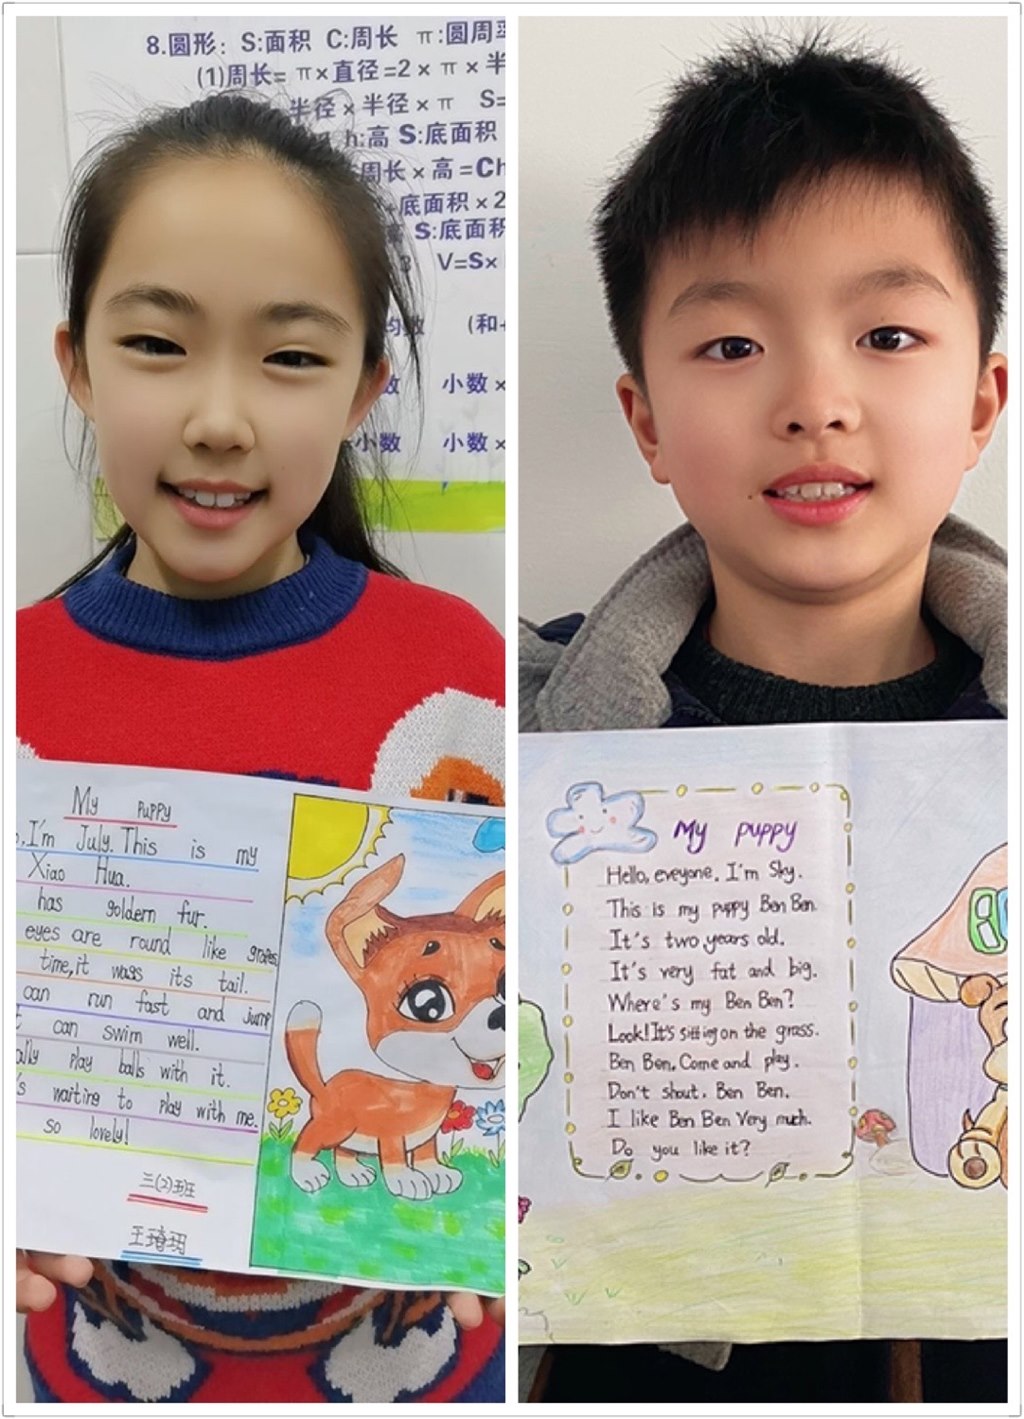 8.圆形: S:面积 C:周长 π:圆周率
(1)周长= π×直径=2×π×半
半径×半径×π S=
h:高 S:底面积
周长×高=Ch
底面积×2
S:底面积
V=S×
均数 (和+
数 小数×
小数 小数×
My puppy
I'm July. This is my
Xiao Hua.
has goldern fur.
eyes are round like grapes
time, it wags its tail.
can run fast and jump
can swim well.
play balls with it.
waiting to play with me.
so lovely!
三(2)班
My puppy
Hello, eveyone. I'm Sky.
This is my puppy Ben Ben.
It's two years old.
It's very fat and big.
Where's my Ben Ben?
Look! It's sitting on the grass.
Ben Ben, Come and play.
Don't shout, Ben Ben.
I like Ben Ben Very much.
Do you like it?